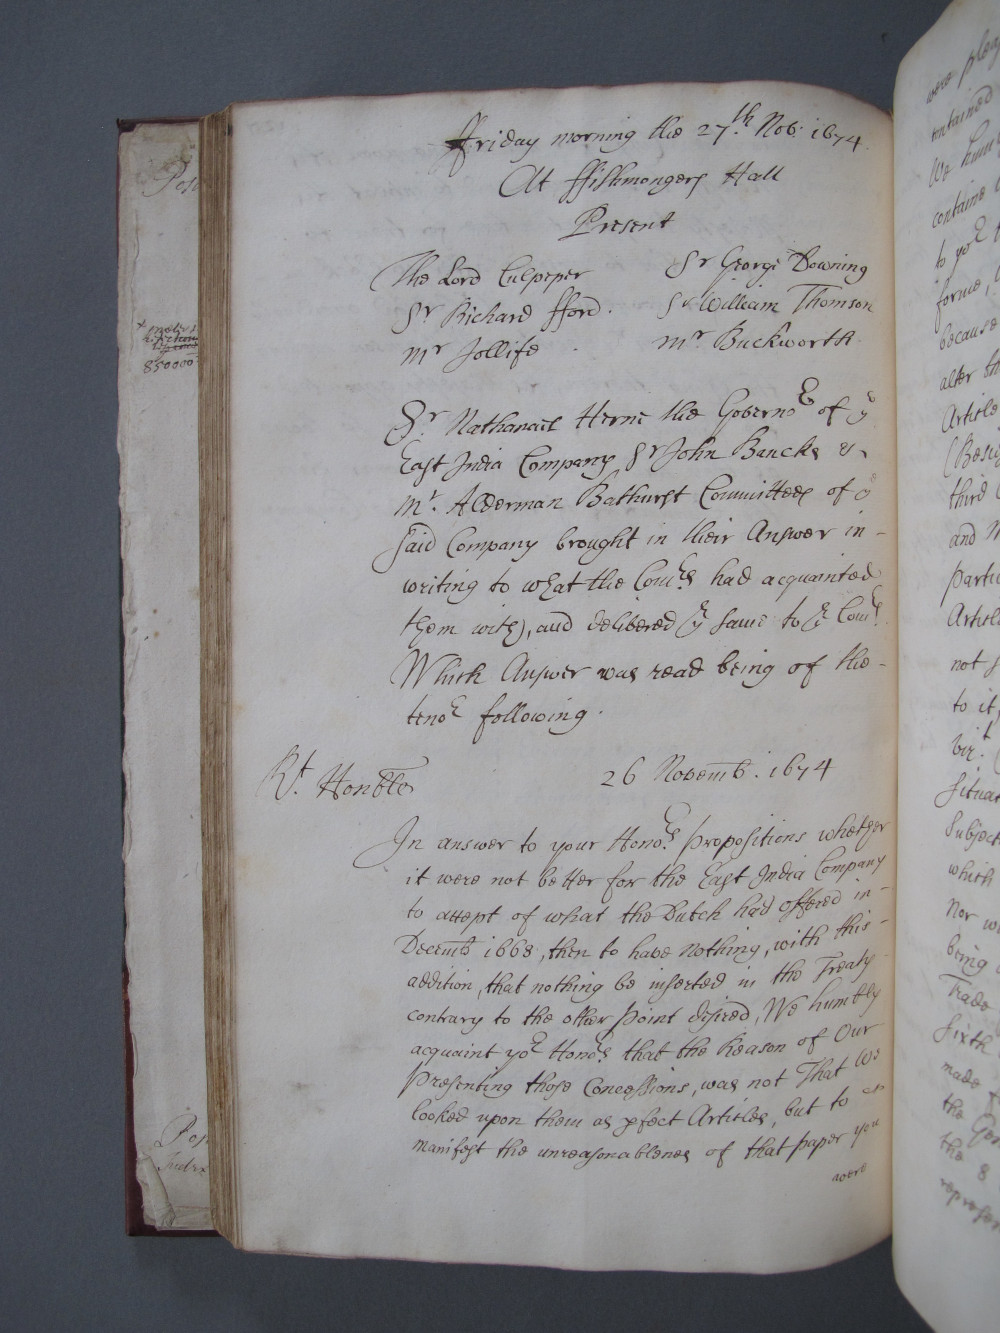 ffriday morning the 27.th Nov: 1674
At ffishmongers Hall
Present
The Lord Culpeper Sr George Downing
Sr Richard fford. Sr William Thomson
mr Jollife mr Buckworth
Sr. Nathanael Herne the Governor of ye
East India Company Sr John Bancks &
mr. Alderman Bathurst Committees of ye
said Company brought in their Answer in -
writing to what the Comrs had acquainted
them with, and delivered ye same to ye Comrs.
Which Answer was read being of the -
tenor following.
Rt. Honble 26 Novemb. 1674
In answer to your Honors propositions whether
it were not better for the East India Company
to accept of what the Dutch had offered in -
Decemb 1668, then to have nothing, with this -
addition, that nothing be inserted in the Treaty -
contrary to the other point desired, We humbly
acquaint yor Honors that the Reason of Our
presenting those Concessions, was not That We
looked upon them as pfect Articles, but to
manifest the unreasonablenes of that paper you
were
were pleas
contained
We hum
containe
to yor
forme,
because
alter th
Article
(Besi
third
and
partic
Article
not s
to it,
vizt.
situat
Subject
which
Nor w
being
Trade
Sixth
made
the Gen
the 8
represen
850000